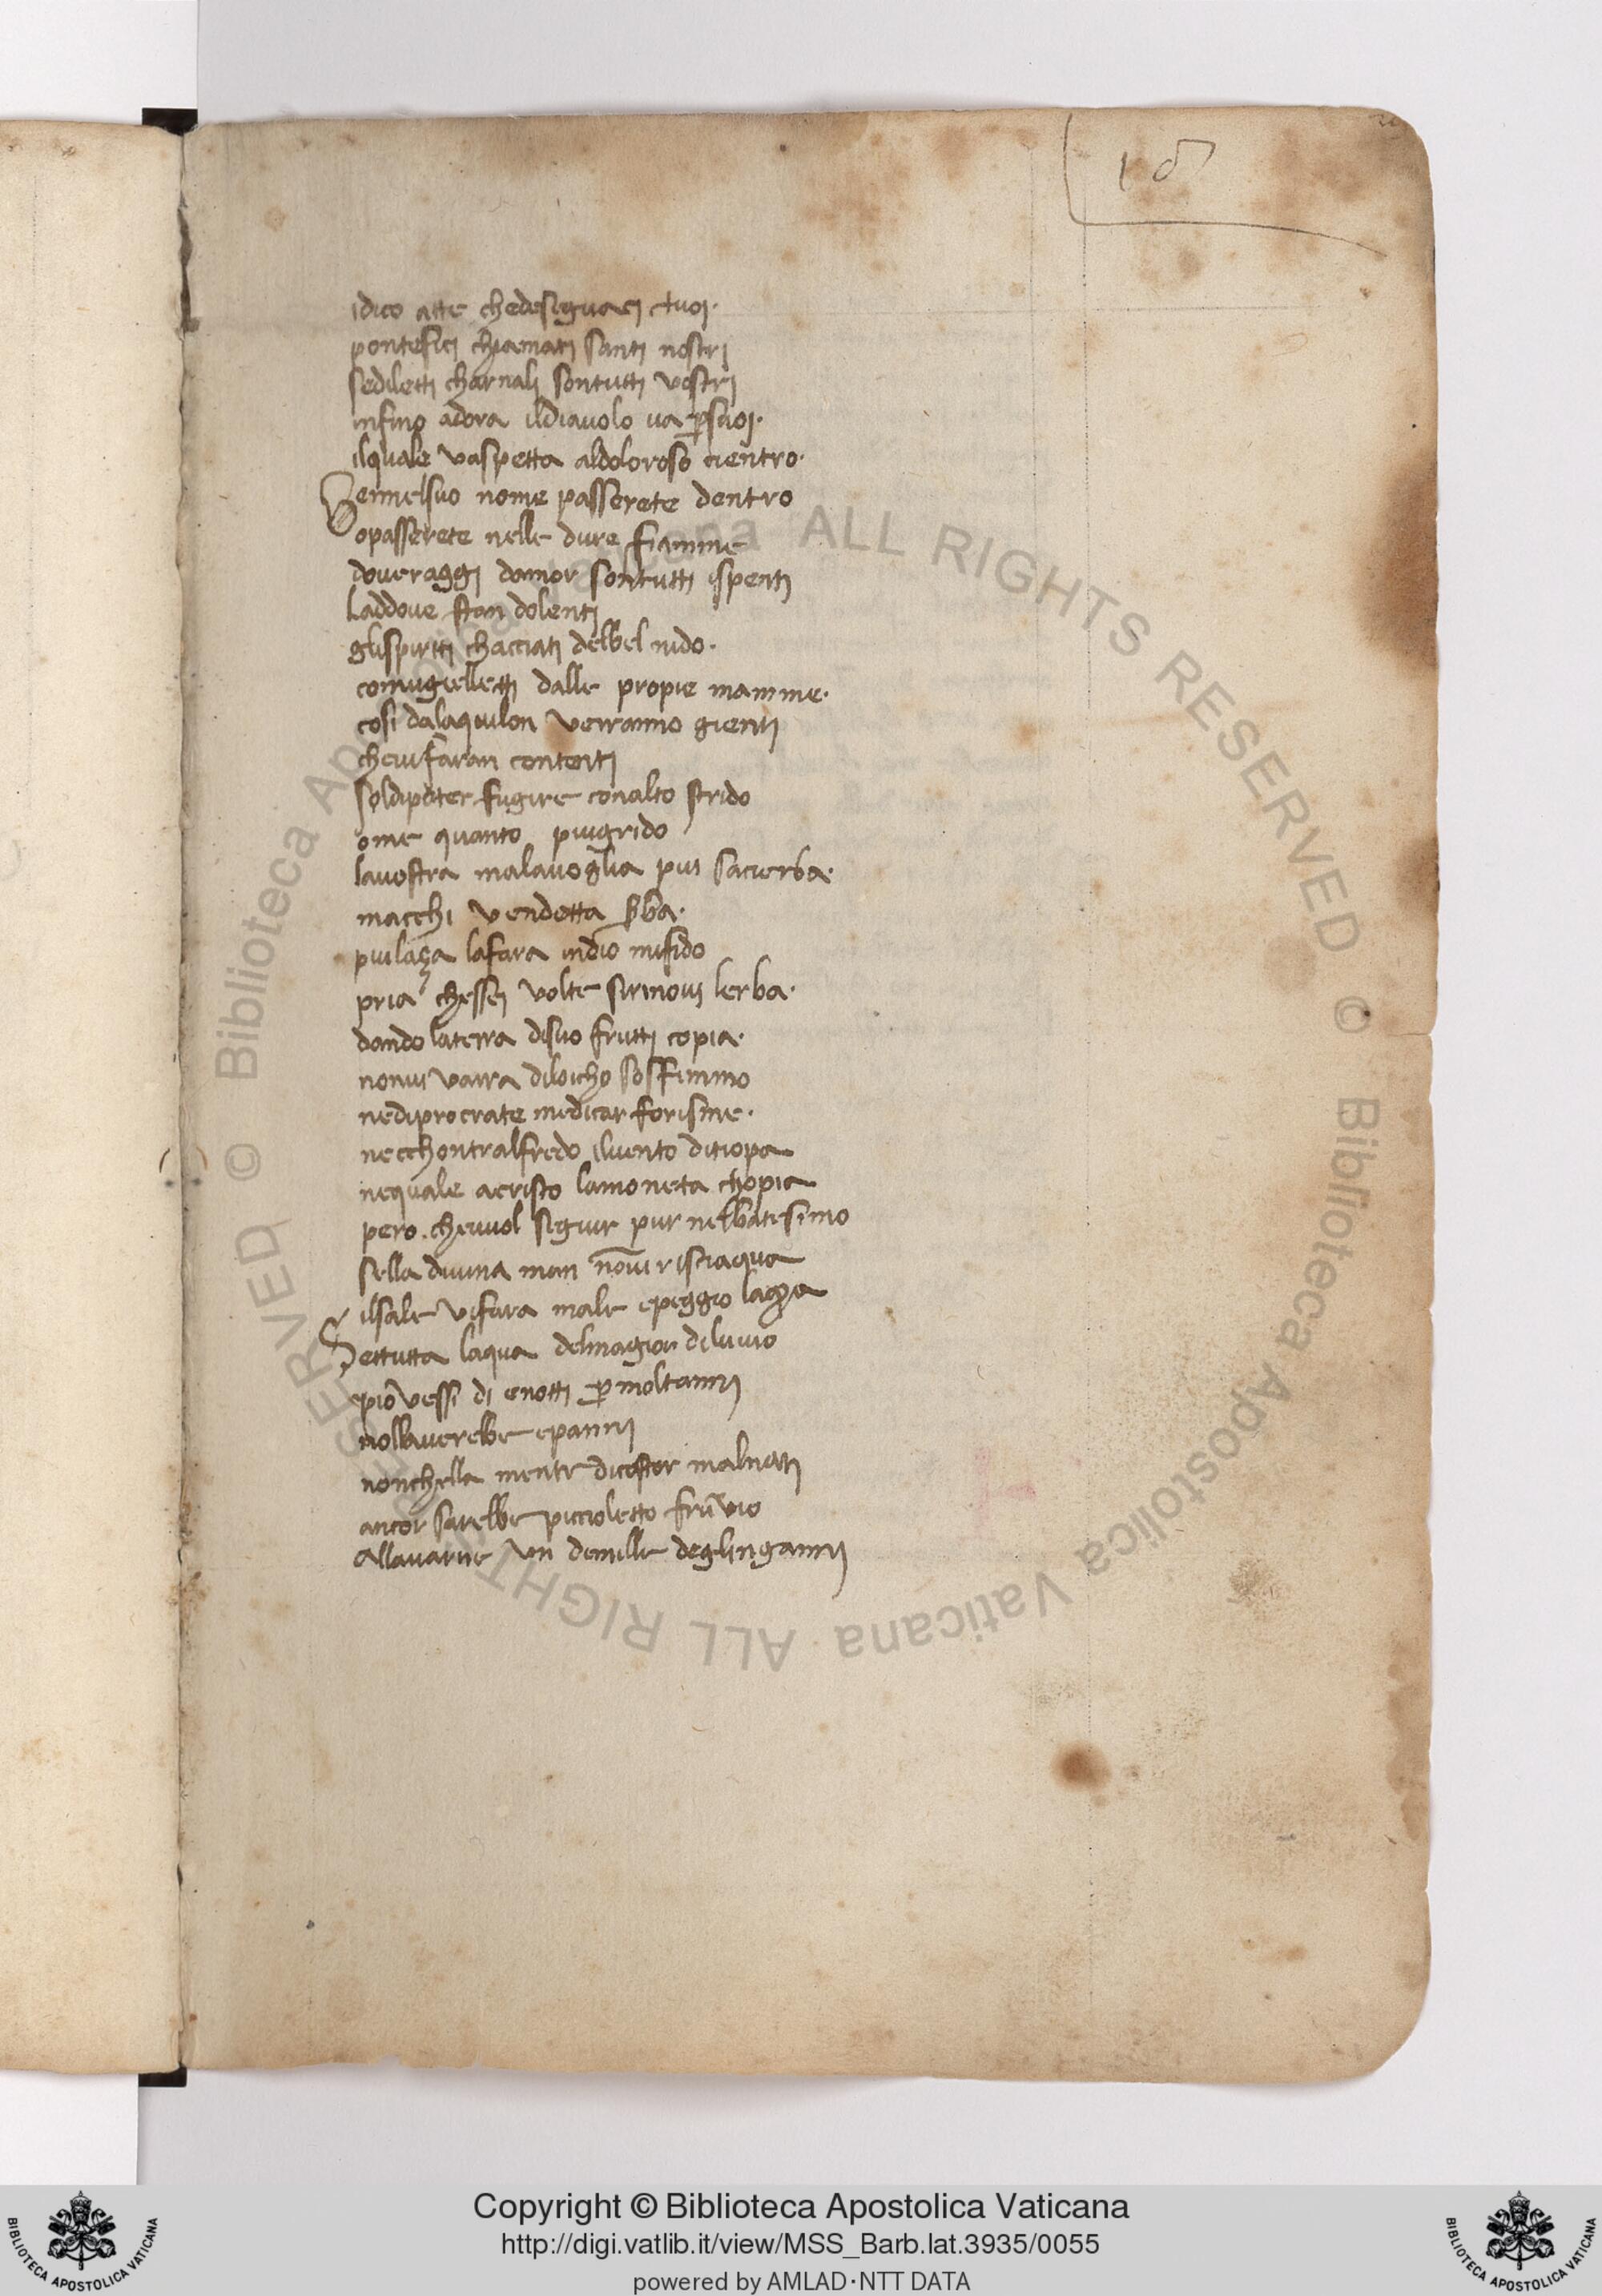 18
idico atte chedeseguaci tuoi.
pontefici chiamati santi nostri
sediletti charnali sontutti vostri
infino adora ildiauolo ua pscioi.
ilquale vaspetta aldoloroso cientro.
Vennelsuo nome passerete dentro
opasserete nelle dure fiamme
doueraggi damor sontutti ispenti
laddoue stan dolenti
glispiriti chacciati delbel nido.
comugielletti dalle propie mamme.
cosi dalaquilon verranno gienti
cheuifaran contenti
soldipoter fugire conalto strido
ome quanto piugrido
lauostra malauoglia piu sacierba.
macchi vendetta sba.
piulaça lafara indio mifido
pria chessei volte sirinoui lerba.
dando laterra disuo frutti copia.
nonui varra diloicho soffimmo
nedipocrate medicar forisme.
necchontralfredo iluento ditiopa
nequale acristo lamoneta chopia
pero. cheuuol seguir pur nelbatesimo
sella diuina man noui risciaqua
ilsale vifara male epeggio lacqa
Settutta laqua delmagior diluuio
piovessi di enotti p moltanni
nollauerebbe epanni
nonchella mente dicostor malnati
ancor sarebbe piccioletto fruuio
Allauarne vn demille deglinganni
© Biblioteca Apostolica Vaticana ALL RIGHTS RESERVED © Biblioteca Apostolica Vaticana ALL RIGHTS RESERVED
Copyright © Biblioteca Apostolica Vaticana
http://digi.vatlib.it/view/MSS_Barb.lat.3935/0055
powered by AMLAD·NTT DATA
BIBLIOTECA APOSTOLICA VATICANA
BIBLIOTECA APOSTOLICA VATICANA